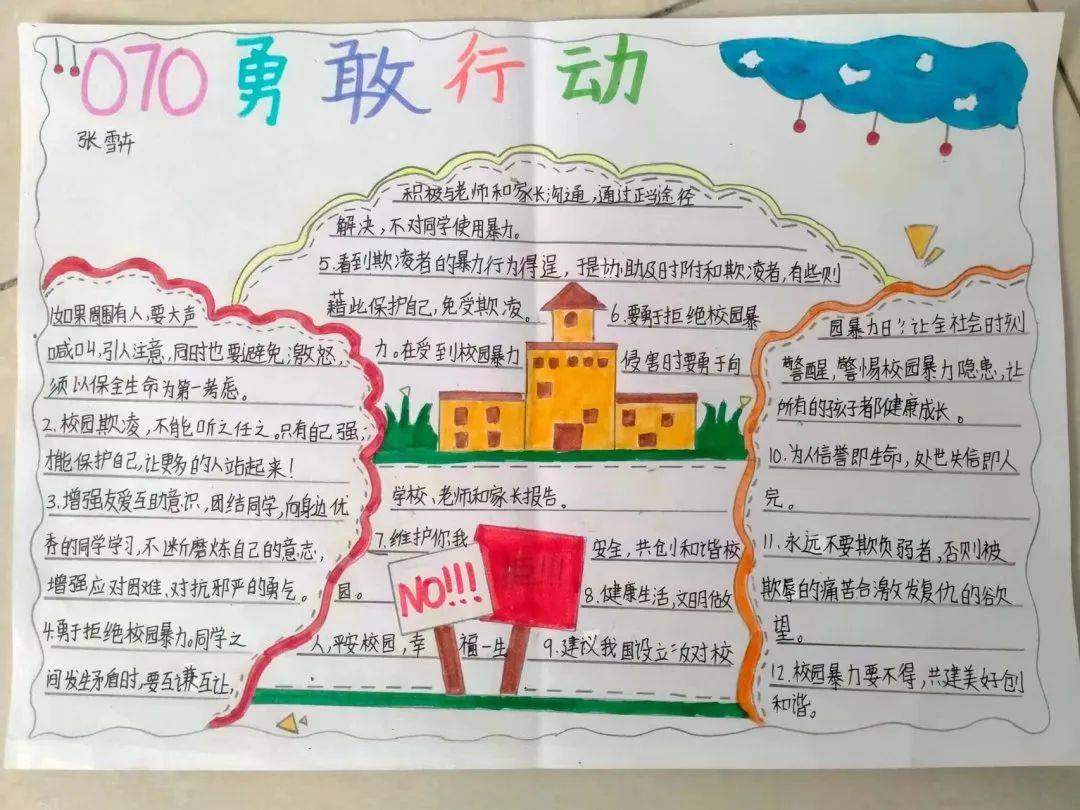 070勇敢行动
张雪卉
1.如果周围有人,要大声
喊叫,引人注意,同时也要避免激怒,
须以保全生命为第一考虑。
2.校园欺凌,不能听之任之。只有自己强,
才能保护自己,让更多的人站起来!
3.增强友爱互助意识,团结同学,向身边优
秀的同学学习,不断磨炼自己的意志,
增强应对困难、对抗邪严的勇气。
4.勇于拒绝校园暴力。同学之
间发生矛盾时,要互谦互让,
积极与老师和家长沟通,通过正当途径
解决,不对同学使用暴力。
5.看到欺凌者的暴力行为得逞,于是协助及时附和欺凌者,有些则
藉此保护自己,免受欺凌。 6.要勇于拒绝校园暴
力。在受到校园暴力 侵害时要勇于向
学校、老师和家长报告。
7.维护你我 安全,共创和谐校
园。 8.健康生活,文明做
人,平安校园,幸 福一生 9.建议我国设立反对校
NO!!!
园暴力日,让全社会时刻
警醒,警惕校园暴力隐患,让
所有的孩子都健康成长。
10.为人信誉即生命,处世失信即人
完。
11.永远不要欺负弱者,否则被
欺辱的痛苦会激发复仇的欲
望。
12.校园暴力要不得,共建美好创
和谐。